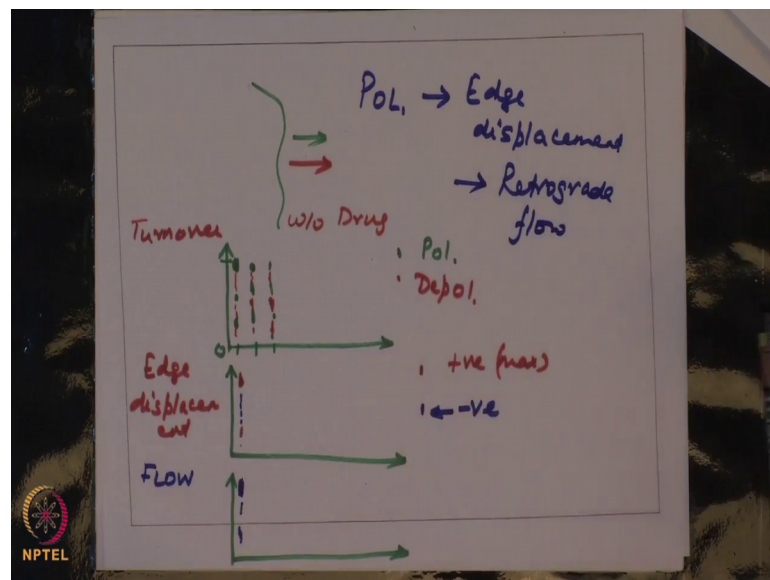 POL. → Edge
displacement
→ Retrograde
flow
w/o Drug
Turnover
Pol.
Depol.
0
Edge
displacem
ent
+ve (max)
← -ve
FLOW
NPTEL